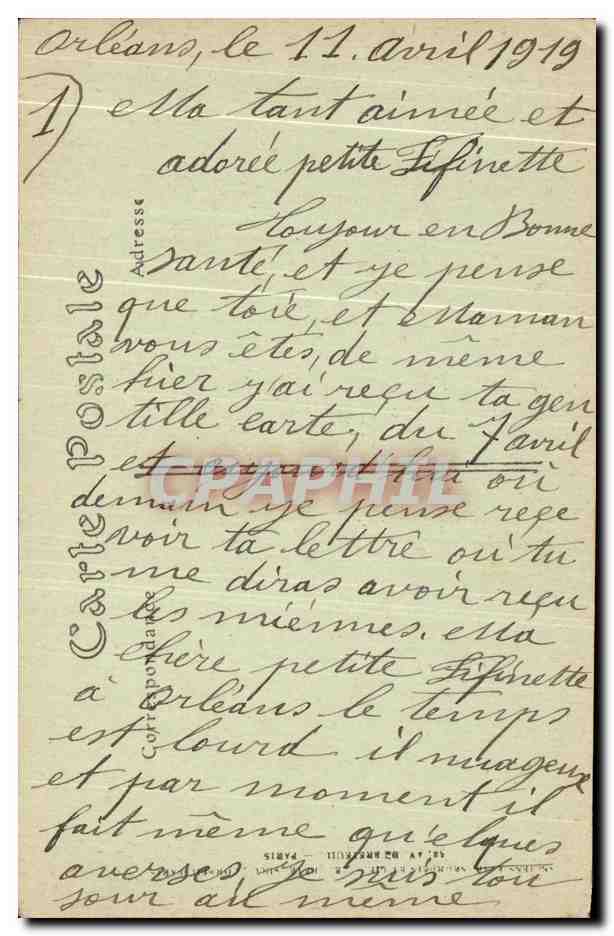 Orléans, le 11 avril 1919
1) Ma tant aimée et
adorée petite Fifinette
Toujour en Bonne
santé, et je pense
que toié, et Maman
vous êtes, de même
hier j'ai reçu ta gen
tille carte, du 7 avril
et aujourd hui où
demain je pense reçe
voir ta lettre où tu
me diras avoir reçu
les miénnes. Ma
chère petite Fifinette
à Orléans le temps
est lourd il nuageux
et par moment il
fait même qu'elques
averses, je suis tou
jour au même
Carte postale
Adresse
Correspondance
AV DE BRETEUIL — PARIS
CPAPHIL